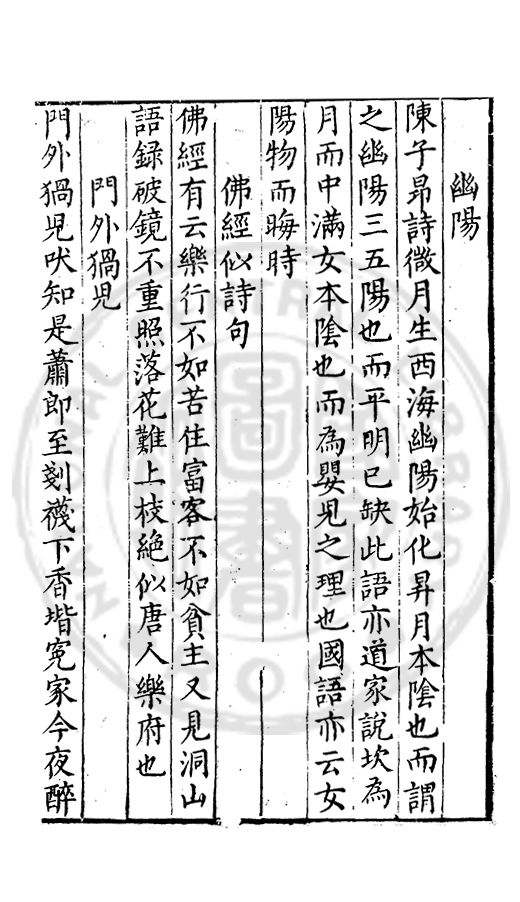 幽陽
陳子昂詩微月生西海幽陽始化昇月本陰也而謂
之幽陽三五陽也而平明已缺此語亦道家說坎為
月而中滿女本陰也而為嬰兒之理也國語亦云女
陽物而晦時
佛經似詩句
佛經有云樂行不如苦住富客不如貧主又見洞山
語錄破鏡不重照落花難上枝絶似唐人樂府也
門外猧兒
門外猧兒吠知是蕭郎至剗襪下香堦寃家今夜醉